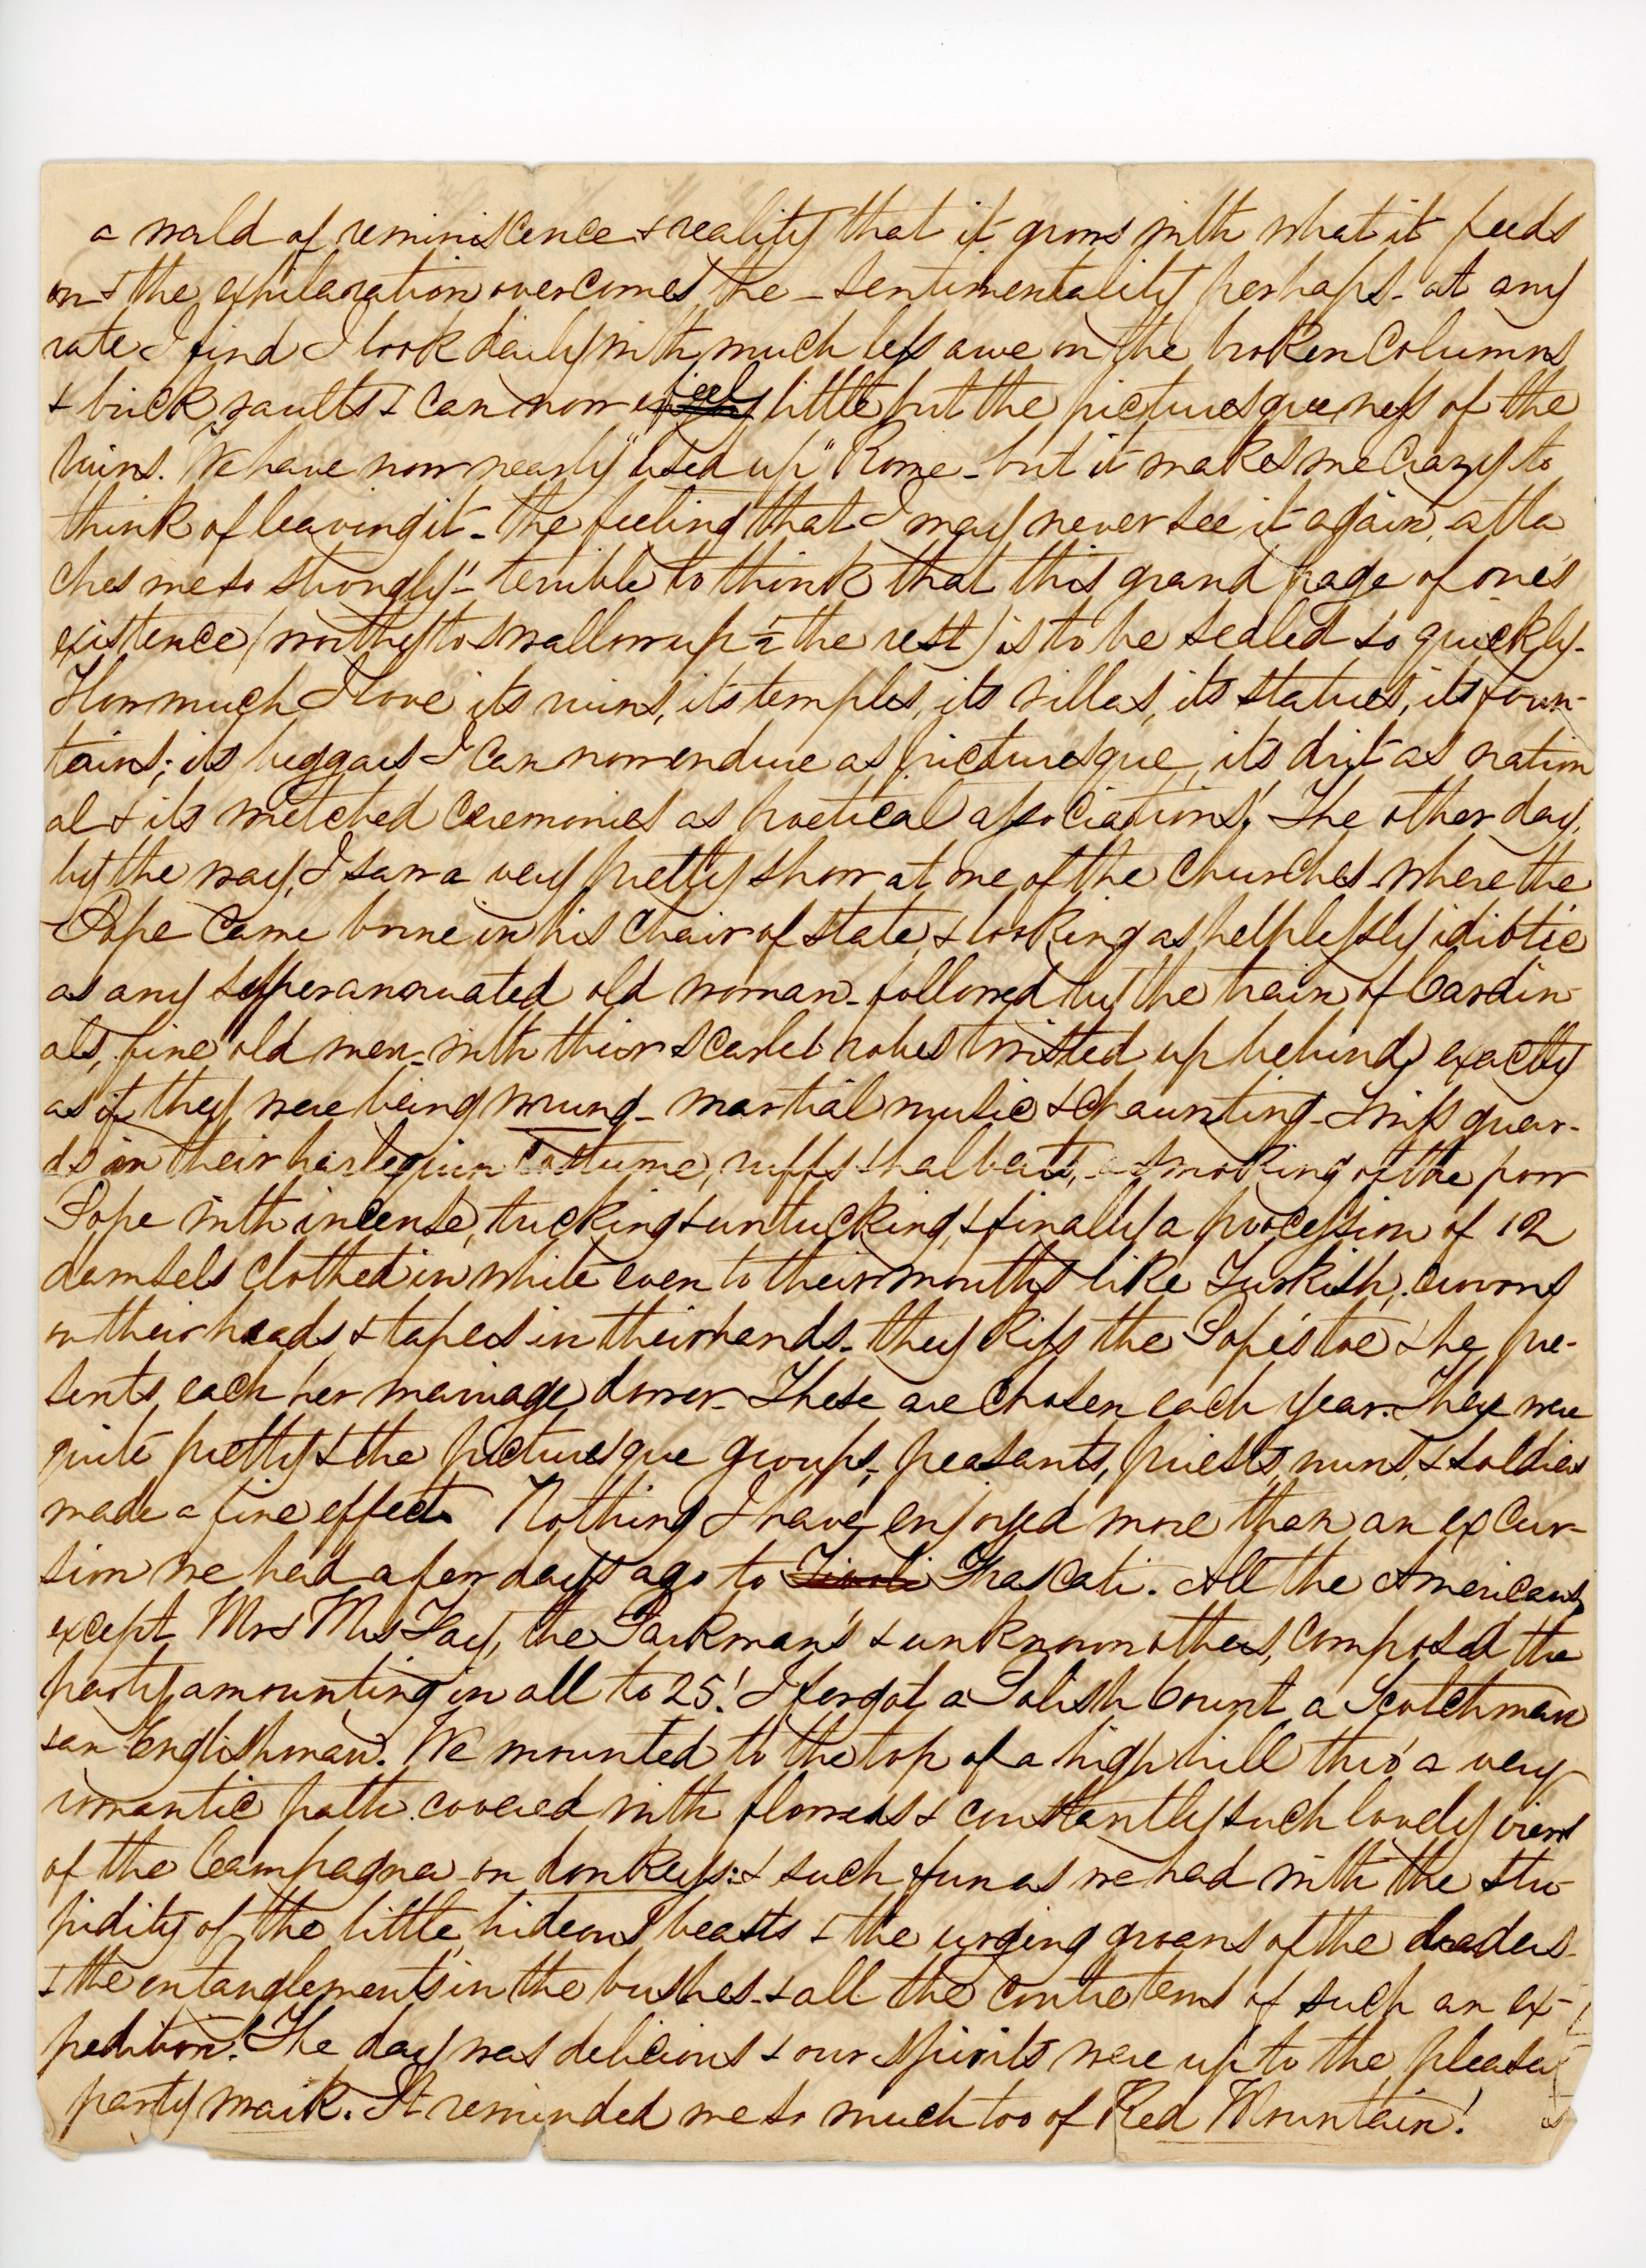 a world of reminiscence & reality that it grows with what it feeds
on & the exhilaration overcomes the - sentimentality perhaps - at any
rate I find I look daily with much less awe on the broken columns
& brick vaults & can now feel little but the picturesqueness of the
ruins. We have now nearly "used up" Rome - but it makes me crazy to
think of leaving it - The feeling that I may never see it again, atta
ches me so strongly - terrible to think that this grand page of one's
existence (worthy to swallow up ½ the rest) is to be sealed so quickly -
How much I love its ruins, its temples, its villas, its statues, its foun-
tains; its beggars I can now endure as picturesque, its dirt as nation
al & its wretched ceremonies as poetical associations! The other day,
by the way, I saw a very pretty show at one of the churches - where the
Pope came borne in his chair of state, & looking as helplessly idiotic
as any superannuated old woman - followed by the train of Cardin-
als, fine old men - with their scarlet robes twisted up behind exactly
as if they were being wrung - martial music & chaunting - Swiss guar-
ds in their harlequin costume, ruffs & halberts, a smoking of the poor
Pope with incense, tucking & untucking, & finally a procession of 12
damsels clothed in white even to their mouths like Turkish, crowns
on their heads & tapers in their hands - they kiss the Pope's toe & he pre-
sents each her marriage dower - These are chosen each year. They were
quite pretty & the picturesque groups, peasants, priests, nuns, & soldiers
made a fine effect. Nothing I have enjoyed more than an excur-
sion we had a few days ago to Tivoli Frascati. All the Americans,
except Mr & Mrs Fay, the Parkman's & unknown others, composed the
party, amounting in all to 25! I forgot a Polish Count, a Scotchman
& an Englishman. We mounted to the top of a high hill thro' a very
romantic path covered with flowers & constantly such lovely views
of the Campagna - on donkeys: & such fun as we had with the stu-
pidity of the little hideous beasts & the urging groans of the leaders -
& the entanglements in the bushes - & all the contretems of such an ex-
pedition! The day was delicious & our spirits were up to the pleasure
party mark. It reminded me so much too of Red Mountain!